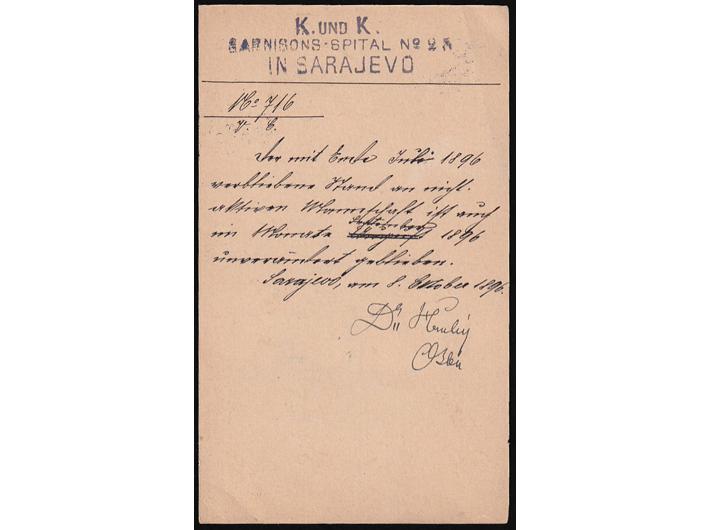 K. UND K.
GARNISONS-SPITAL No 25
IN SARAJEVO
No 716
Der mit Ende Juli 1896
verbliebene Stand an nicht-
aktiven Mannschaft ist auch
im Monate September 1896
unverändert geblieben.
Sarajevo, am 8. Oktober 1896.
Dr.